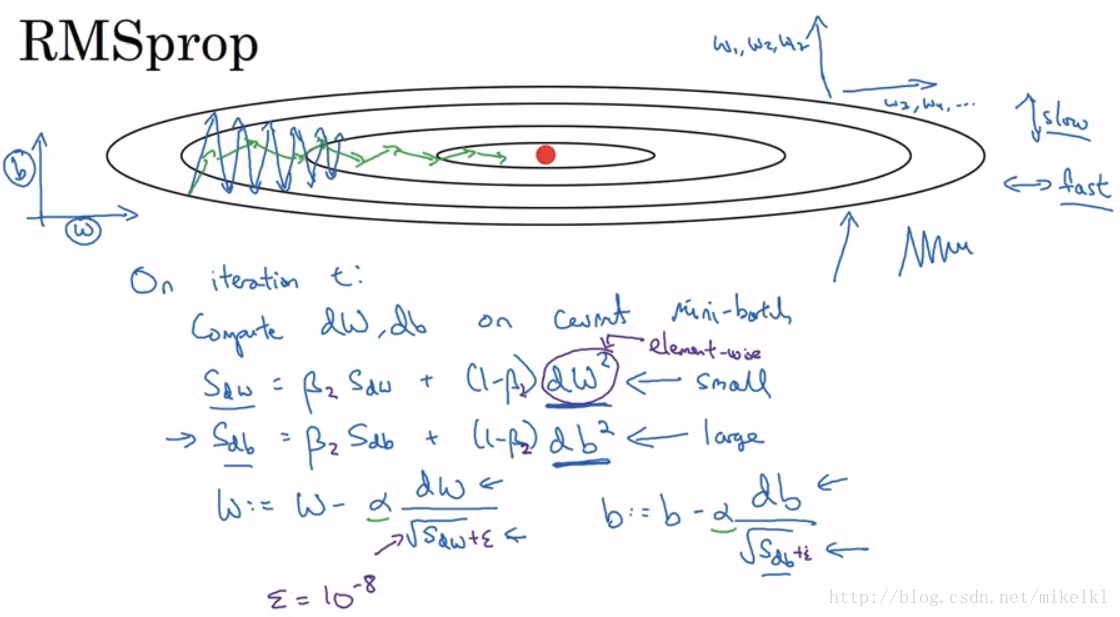 RMSprop
w₁, w₂, w₇
w₃, w₄, ...
↕ slow
b
↔ fast
w
On iteration t:
Compute dW, db on current mini-batch
element-wise
S_dw = β₂ S_dw + (1-β₂) dW² ← small
→ S_db = β₂ S_db + (1-β₂) db² ← large
W := W - α dW / √S_dw + ε ←
b := b - α db / √S_db + ε ←
ε = 10⁻⁸
http://blog.csdn.net/mikelkl